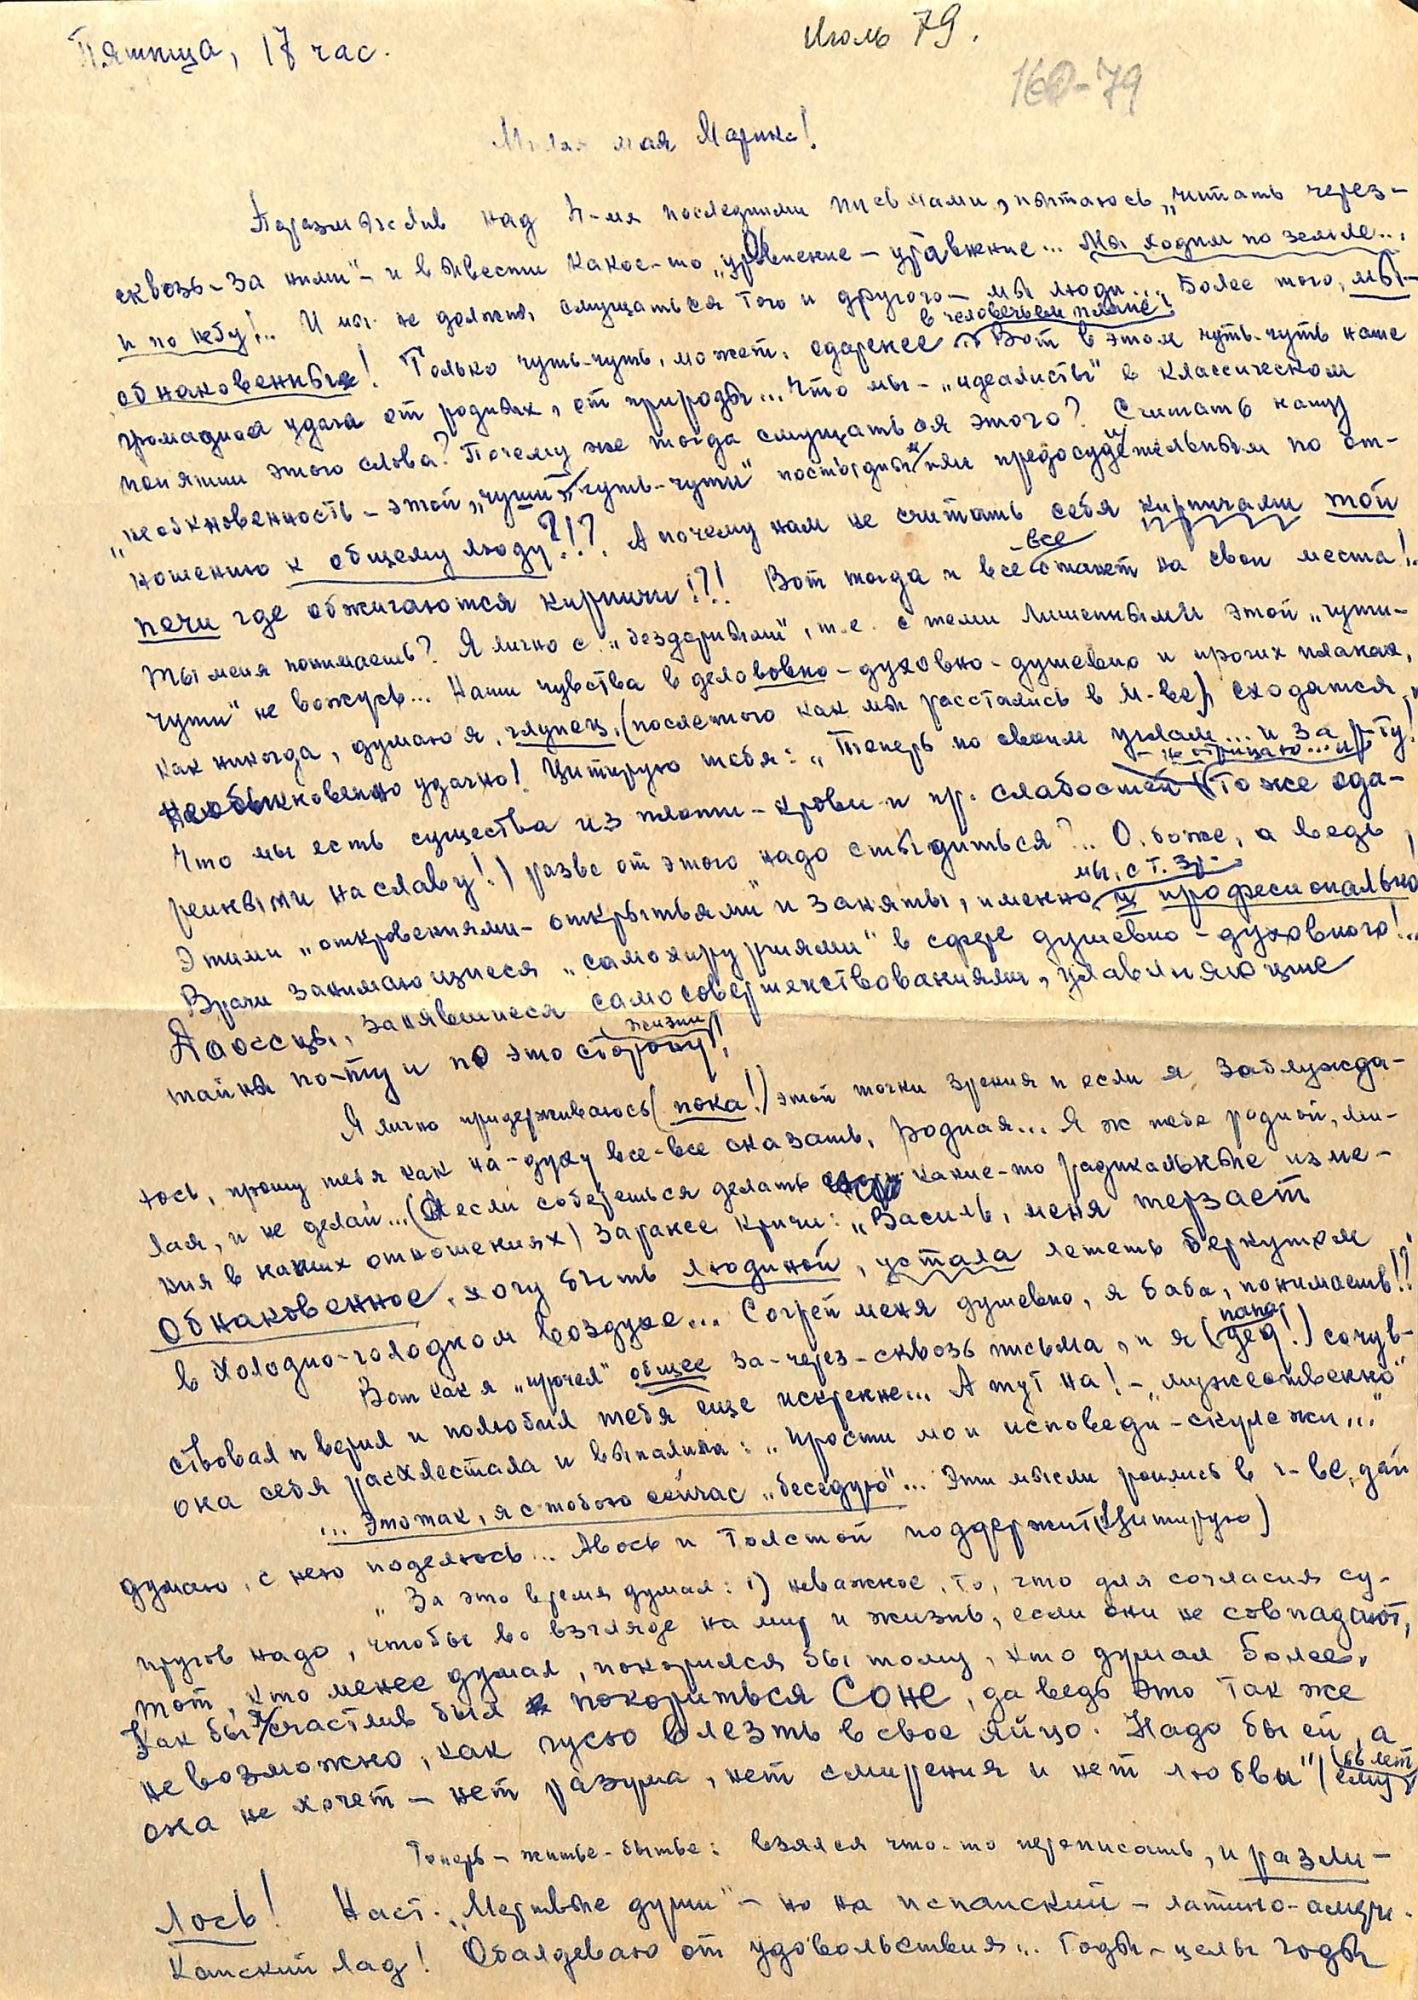 Пятница, 17 час.
Июль 79.
160-79
Милая мая Марина!
Поразмыслив над 4-мя последними письмами, пытаюсь „читать через-
сквозь-за ними" – и вывести какое-то „уровнение – уравнение... Мы ходим по земле...
и по небу!.. И мы не должны смущаться того и другого – мы люди... Более того, мы –
обнаковенные! Только чуть-чуть, может, одаренее в человечьем плане! Вот в этом чуть-чуть наше
громадная удача от родных, от природы... Что мы – „идеалисты" в классическом
понятии этого слова? Почему же тогда смущаться этого? Считать нашу
„необкновенность – этой „чути чуть-чути" постыдным или предосудительным по от-
ношению к общему люду?!? А почему нам не считать себя кирпичами той
печи где обжигаются кирпичи!?! Вот тогда и всё все станет на свои места!..
Ты меня понимаешь? Я лично с „бездарными", т.е. с теми лишенными этой „чути-
чути" не вожусь... Наши чувства в деловно-духовно-душевно и прочих планах,
как никогда, думаю я, глупец, (после того как мы расстались в М-ве), сходятся,
необыкновенно удачно! Цитирую тебя: „Теперь по своим углам... и за р-ту!
Что мы есть существа из плоти-крови и пр. слабостей – не отрицаю... и (тоже ода-
ренными на славу!) разве от этого надо стыдиться?.. О, боже, а ведь,
этими „откровениями-открытьями" и заняты, именно мы, с т.зр. и професионально!
Врачи занимающиеся „самохирургиями" в сфере душевно-духовного!..
Даоссцы, занявшиеся самосовершенствованиями, улавляняющие
тайны по-ту и по это сторону жизни!
Я лично придерживаюсь (пока!) этой точки зрения и если я заблужда-
юсь, прошу тебя как на-духу все-все сказать, родная... Я ж тебе родной, ми-
лая, и не делай... (А если соберешься делать какие-то радикальные изме-
ния в наших отношениях) заранее кричи: „Василь, меня терзает
обнаковенное, хочу быть людиной, устала лететь беркутом
в холодно-голодном воздухе... Согрей меня душевно, я баба, понимаешь!?
Вот как я „прочел" общее за-через-сквозь письма, и я (папа дед!) сочув-
ствовал и верил и полюбил тебя еще искренне... А тут на! – „мужественно"
она себя расхлестала и выпалила: „прости мои исповеди-скулежи..."
... Это так, я с тобою сейчас „беседую"... Эти мысли роились в г-ве, дай
думаю, с нею поделюсь... Авось и Толстой поддержит (Цитирую)
„За это время думал: 1) неважное, то, что для согласия су-
пругов надо, чтобы во взгляде на мир и жизнь, если они не совпадают,
тот, кто менее думал, покорился бы тому, кто думал более.
Как бы я счастлив был покориться Соне, да ведь это так же
невозможно, как гусю влезть в свое яйцо. Надо бы ей, а
она не хочет – нет разума, нет смирения и нет любви" (ему лет
Теперь – житье-бытье: взялся что-то переписать, и разли-
лось! Наст. „Мертвые души" – но на испанский – латино-амери-
канский лад! Обалдеваю от удовольствия... Годы – целы годы